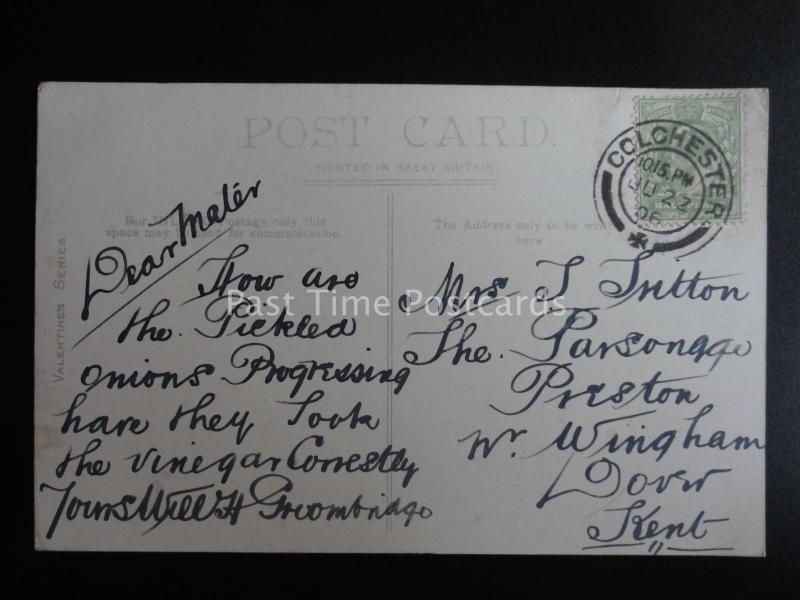 POST CARD.
PRINTED IN GREAT BRITAIN
COLCHESTER
10 15 PM
JU 27
06
VALENTINE'S SERIES.
space may be used for communication.
The Address only to be
here
Past Time Postcards
Dear Mater
How are
the Pickled
onions Progressing
have they Took
the vinegar Correstly
Yours Will H Groombridge
Mrs J Sutton
The Parsonage
Preston
Nr. Wingham
Dover
Kent